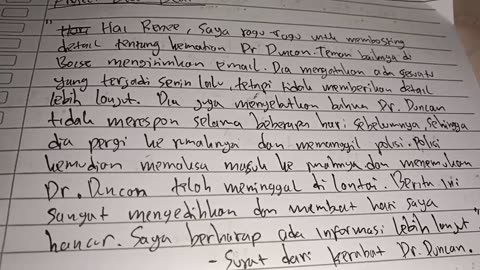 "Hai Renee, saya ragu-ragu untk memposting
detail tentang kematian Dr. Duncan. Teman baiknya di
Boise mengirimkan email. Dia mengatakan ada sesuatu
yang terjadi senin lalu, tetapi tidak memberikan detail
lebih lanjut. Dia juga menyebutkan bahwa Dr. Duncan
tidak merespon selama beberapa hari sebelumnya, sehingga
dia pergi ke rumahnya dan memanggil polisi. Polisi
kemudian memaksa masuk ke rumahnya dan menemukan
Dr. Duncan telah meninggal di lantai. Berita ini
sangat menyedihkan dan membuat hati saya
hancur. Saya berharap ada informasi lebih lanjut."
- Surat dari kerabat Dr. Duncan.